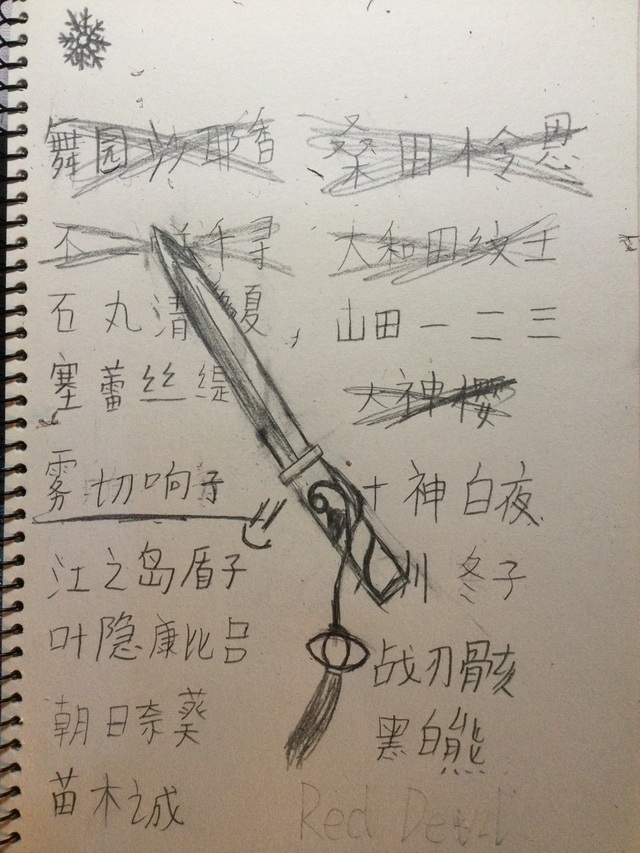 舞园沙耶香
桑田怜恩
不咲千寻
大和田纹土
石丸清夏
山田一二三
塞蕾丝缇
大神樱
雾切响子
十神白夜
江之岛盾子
川冬子
叶隐康比吕
战刃骸
朝日奈葵
黑白熊
苗木诚
Red